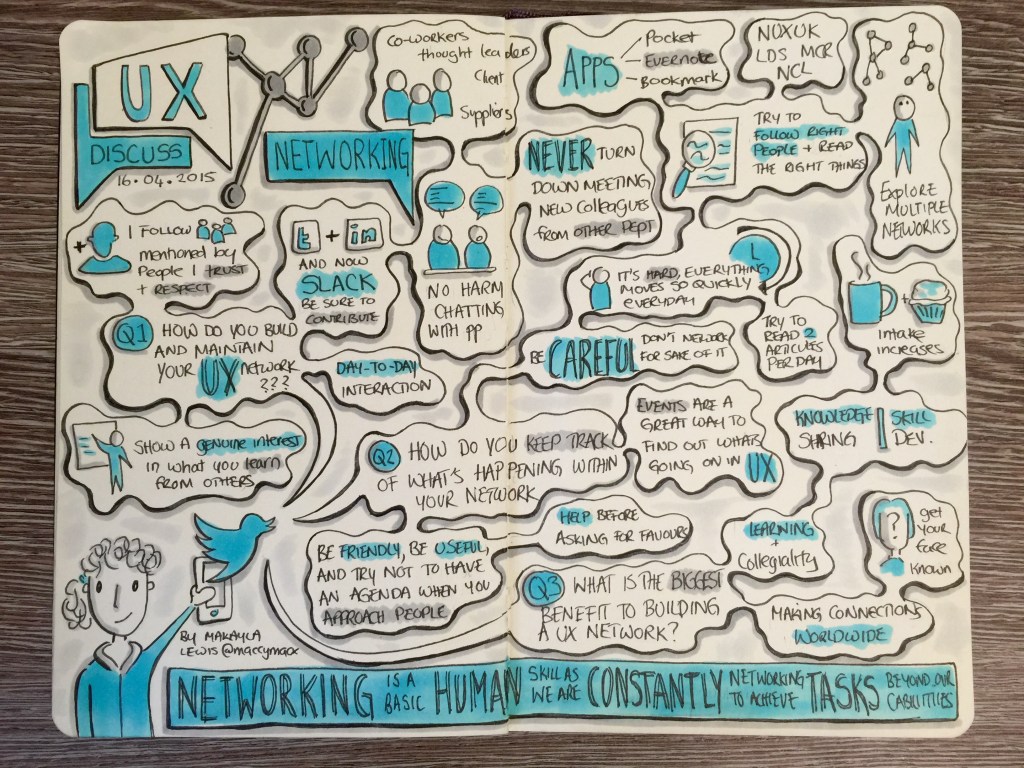 UX
DISCUSS
16.04.2015
NETWORKING
Co-workers
thought leaders
Client
Suppliers
APPS
Pocket
Evernote
Bookmark
NUXUK
LDS MCR
NCL
NEVER TURN
DOWN MEETING
NEW COLLEAGUES
FROM OTHER DEPT
TRY TO
FOLLOW RIGHT
PEOPLE + READ
THE RIGHT THINGS
EXPLORE
MULTIPLE
NETWORKS
+
I FOLLOW
mentioned by
People I TRUST
+ RESPECT
t + in
AND NOW
SLACK
BE SURE TO
CONTRIBUTE
NO HARM
CHATTING
WITH PP
Q1 HOW DO YOU BUILD
AND MAINTAIN
YOUR UX network
???
DAY-TO-DAY
INTERACTION
SHOW A genuine interest
in what you learn
FROM OTHERS
IT'S HARD, EVERYTHING
MOVES SO QUICKLY
EVERYDAY
BE CAREFUL DON'T NETWORK
FOR SAKE OF IT
TRY TO
READ 2
ARTICLES
PER DAY
+
intake
increases
KNOWLEDGE
SHRING
SKILL
DEV.
Q2 HOW DO YOU KEEP TRACK
OF WHAT'S HAPPENING WITHIN
YOUR NETWORK
EVENTS ARE A
GREAT WAY TO
FIND OUT WHATS
GOING ON IN UX
BE FRIENDLY, BE USEFUL,
AND TRY NOT TO HAVE
AN AGENDA WHEN YOU
APPROACH PEOPLE
HELP BEFORE
ASKING FOR FAVOURS
Q3 WHAT IS THE BIGGEST
BENEFIT TO BUILDING
A UX NETWORK?
LEARNING
+
Collegiality
?
get
your
face
known
MAKING CONNECTIONS
WORLDWIDE
BY MAKAYLA
LEWIS @maccymacx
NETWORKING IS A BASIC HUMAN SKILL AS WE ARE CONSTANTLY NETWORKING TO ACHIEVE TASKS BEYOND OUR CABILITIES